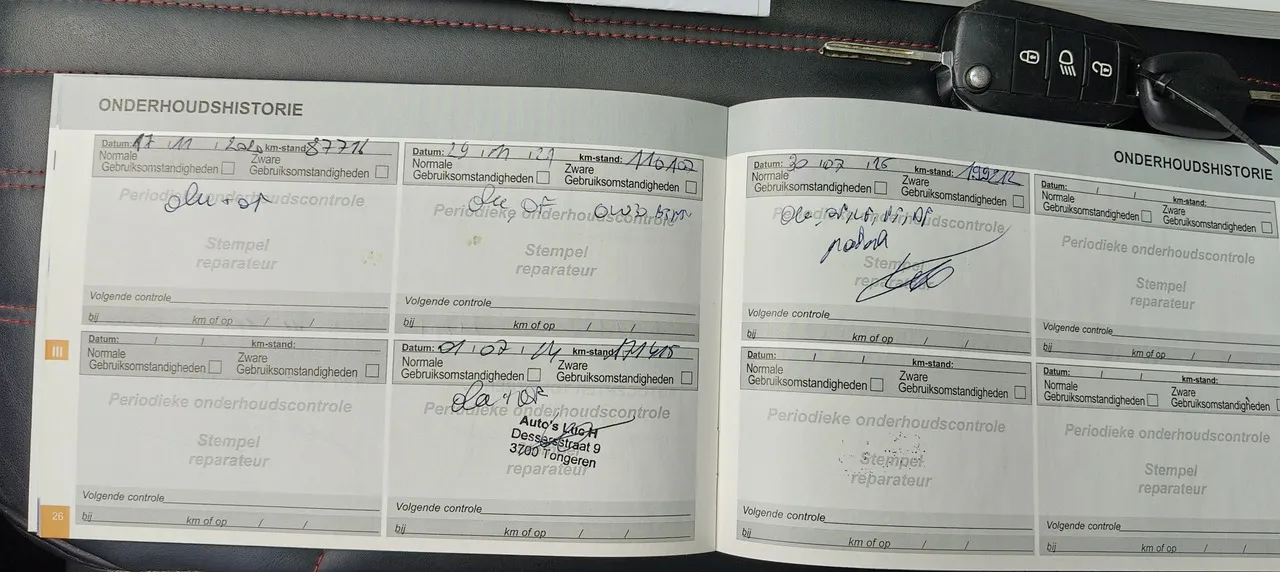 ONDERHOUDSHISTORIE
Datum: 17 11 2020 km-stand: 87716
Normale
Gebruiksomstandigheden
Zware
Gebruiksomstandigheden
Periodieke onderhoudscontrole
Stempel
reparateur
Volgende controle
bij km of op / /
Datum: 29 11 21 km-stand: 110102
Normale
Gebruiksomstandigheden
Zware
Gebruiksomstandigheden
Periodieke onderhoudscontrole
Stempel
reparateur
Volgende controle
bij km of op / /
III
Datum: / / km-stand:
Normale
Gebruiksomstandigheden
Zware
Gebruiksomstandigheden
Periodieke onderhoudscontrole
Stempel
reparateur
Volgende controle
bij km of op / /
Datum: 01 07 km-stand: 171415
Normale
Gebruiksomstandigheden
Zware
Gebruiksomstandigheden
Periodieke onderhoudscontrole
Auto's Luc H
Dessersstraat 9
3700 Tongeren
reparateur
Volgende controle
bij km of op / /
26
ONDERHOUDSHISTORIE
Datum: 30 07 km-stand: 199212
Normale
Gebruiksomstandigheden
Zware
Gebruiksomstandigheden
Periodieke onderhoudscontrole
Stempel
reparateur
Volgende controle
bij km of op / /
Datum: / / km-stand:
Normale
Gebruiksomstandigheden
Zware
Gebruiksomstandigheden
Periodieke onderhoudscontrole
Stempel
reparateur
Volgende controle
bij km of op / /
Datum: / / km-stand:
Normale
Gebruiksomstandigheden
Zware
Gebruiksomstandigheden
Periodieke onderhoudscontrole
Stempel
reparateur
Volgende controle
bij km of op / /
Datum: / / km-stand:
Normale
Gebruiksomstandigheden
Zware
Gebruiksomstandigheden
Periodieke onderhoudscontrole
Stempel
reparateur
Volgende controle
bij km of op / /